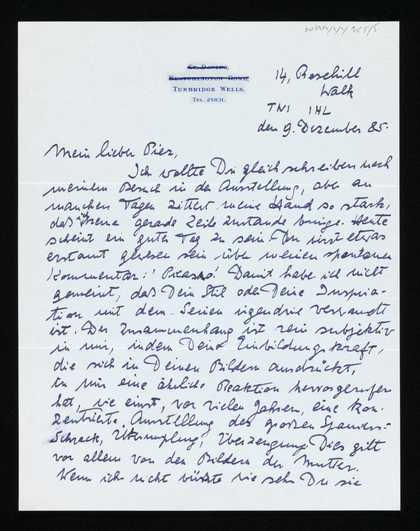 St. David's,
TUNBRIDGE WELLS,
14, Roschill
Walk
TN1 1HL
den 9. Dezember 85.
Mein lieber Piez,
Ich wollte Dir gleich schreiben nach
meinem Besuch in der Ausstellung, aber an
manchen Tagen zittert meine Hand so stark,
daß keine gerade Zeile zustande bringe. Heute
scheint ein guter Tag zu sein. Du wirst etwas
erstaunt gewesen sein über meinen spontanen
Kommentar: Picasso! Damit habe ich nicht
gemeint, daß Dein Stil oder Deine Inspira-
tion mit dem Seinen irgendwie verwandt
ist. Der Zusammenhang ist rein subjektiv
in mir, indem Deine Einbildungskraft,
die sich in Deinen Bildern ausdrückt,
in mir eine ähnliche Reaktion hervorgerufen
hat, wie einst, vor vielen Jahren, eine kon-
zentrierte Ausstellung des großen Spaniers:
Schreck, Überzeugung. Dies gilt
vor allem von den Bildern der Mutter.
Wenn ich nicht wüsste wie sehr Du sie